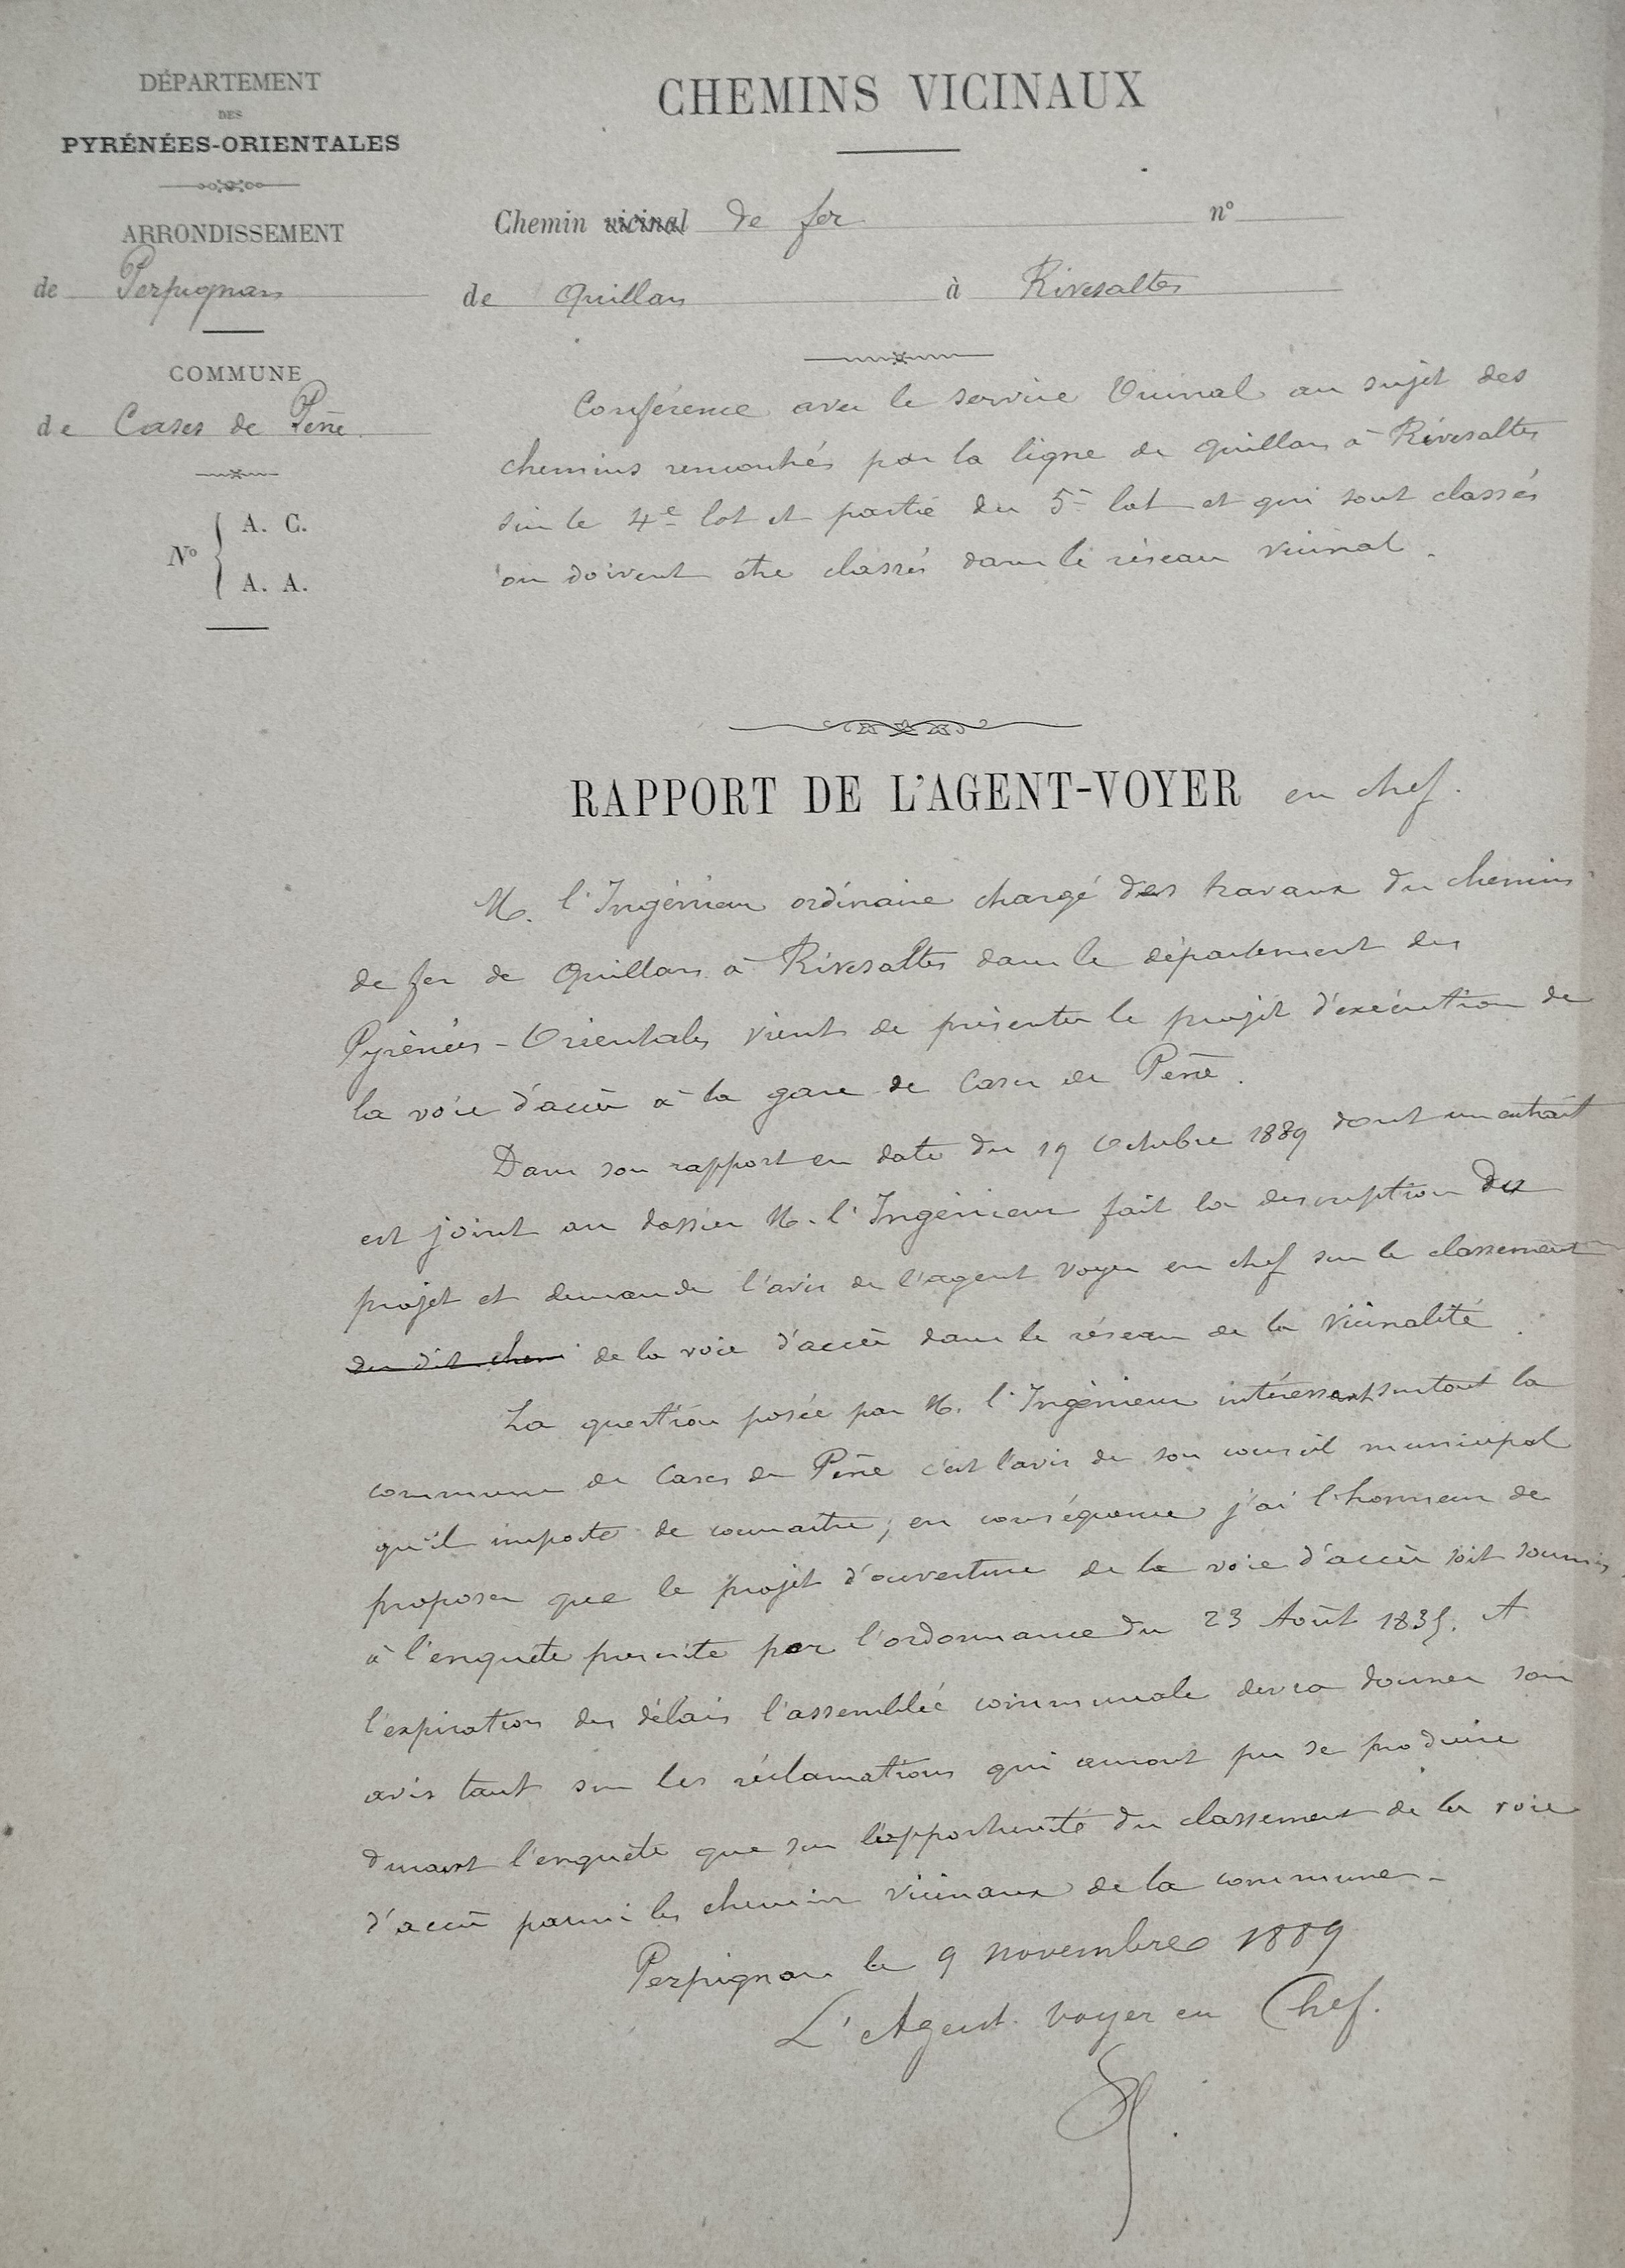 DÉPARTEMENT
DES
PYRÉNÉES-ORIENTALES
ARRONDISSEMENT
de Perpignan
COMMUNE
de Cases de Pène
N° A. C.
A. A.
CHEMINS VICINAUX
Chemin vicinal de fer n°
de Quillan à Rivesaltes
Conférence avec le service Vicinal au sujet des
chemins rencontrés par la ligne de Quillan à Rivesaltes
sur le 4e lot et partie du 5e lot et qui sont classés
ou doivent être classés dans le réseau vicinal.
RAPPORT DE L'AGENT-VOYER en chef.
M. l'Ingénieur ordinaire chargé des travaux du chemin
de fer de Quillan à Rivesaltes dans le département des
Pyrénées-Orientales vient de présenter le projet d'exécution de
la voie d'accès à la gare de Cases de Pène.
Dans son rapport en date du 19 Octobre 1889 dont un extrait
est joint au dossier M. l'Ingénieur fait la description du
projet et demande l'avis de l'agent voyer en chef sur le classement
du dit chemi de la voie d'accès dans le réseau de la Vicinalité.
La question posée par M. l'Ingénieur intéressant surtout la
commune de Cases de Pène c'est l'avis de son conseil municipal
qu'il importe de connaitre; en conséquence j'ai l'honneur de
proposer que le projet d'ouverture de la voie d'accès soit soumis
à l'enquête prescrite par l'ordonnance du 23 Août 1835. A
l'expiration des délais l'assemblée communale devra donner son
avis tant sur les réclamations qui auront pu se produire
durant l'enquête que sur l'opportunité du classement de la voie
d'accès parmi les chemins vicinaux de la commune.
Perpignan le 9 novembre 1889
L'Agent voyer en Chef.